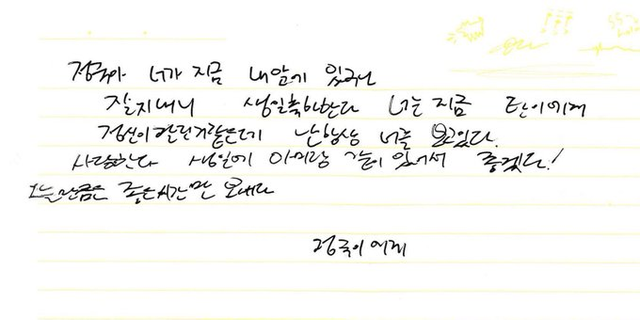 정국아 너가 지금 내앞에 있구나
잘지내니 생일축하한다 너는 지금 탄이에게
정신이팔린거같은데 난항상 너를 보고있다.
사랑한다 생일에 아미랑 같이 있어서 좋겠다!
오늘만큼은 좋은시간만 보내라
정국이에게